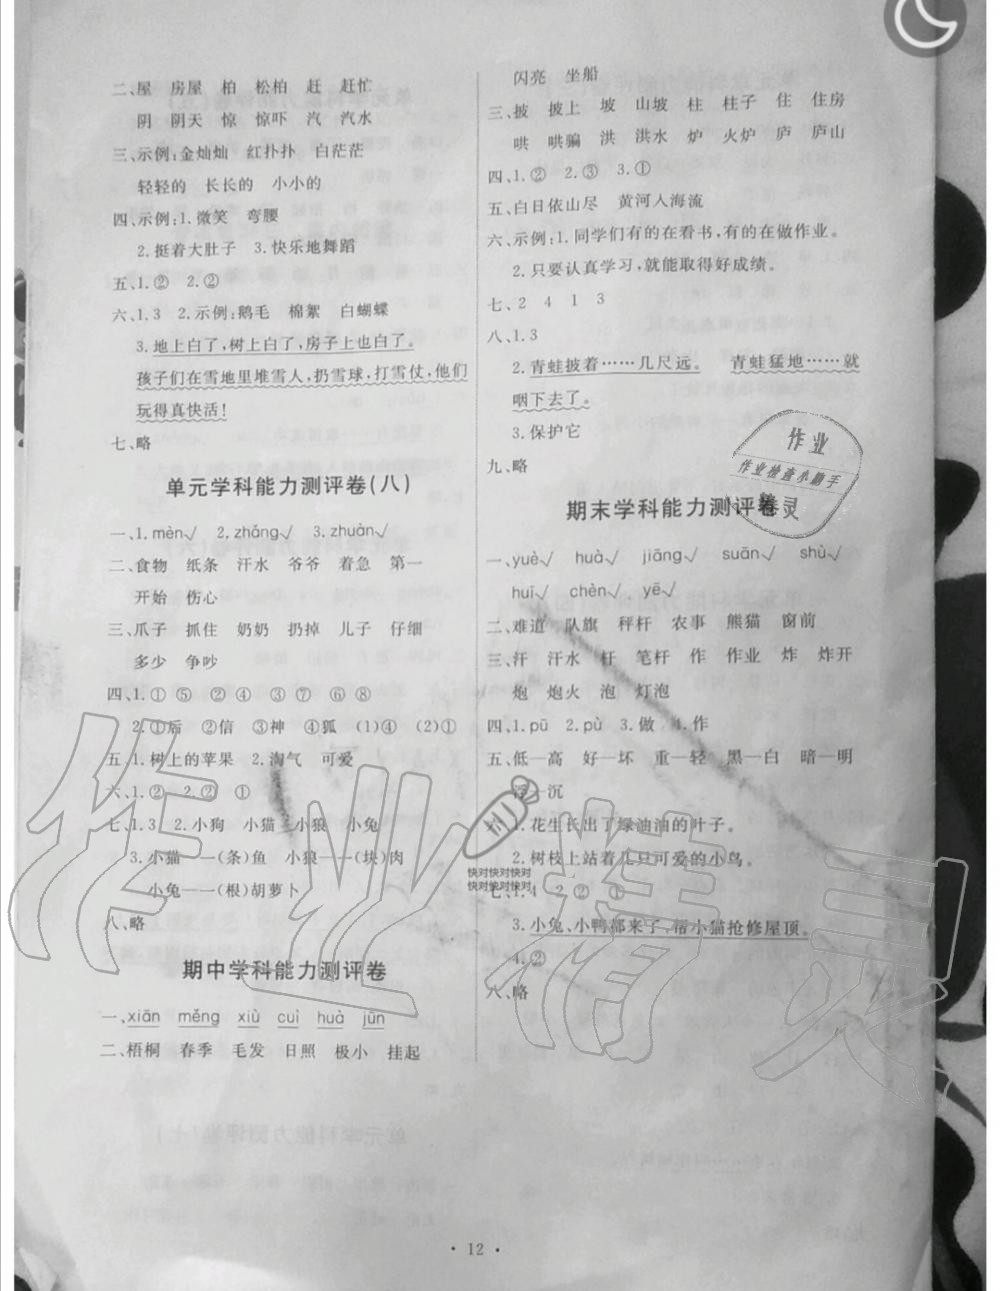 二、屋 房屋 柏 松柏 赶 赶忙
阴 阴天 惊 惊吓 汽 汽水
三、示例:金灿灿 红扑扑 白茫茫
轻轻的 长长的 小小的
四、示例:1.微笑 弯腰
2.挺着大肚子 3.快乐地舞蹈
五、1.② 2.②
六、1.3 2.示例:鹅毛 棉絮 白蝴蝶
3.地上白了,树上白了,房子上也白了。
孩子们在雪地里堆雪人,扔雪球,打雪仗,他们
玩得真快活!
七、略
单元学科能力测评卷(八)
一、1.mèn√ 2.zhǎng√ 3.zhuàn√
二、食物 纸条 汗水 爷爷 着急 第一
开始 伤心
三、爪子 抓住 奶奶 扔掉 儿子 仔细
多少 争吵
四、1.① ⑤ ② ④ ③ ⑦ ⑥ ⑧
2.①后 ②信 ③神 ④狐 (1)④ (2)①
五、1.树上的苹果 2.淘气 可爱
六、1.② 2.② ①
七、1.3 2.小狗 小猫 小狼 小兔
3.小猫——(条)鱼 小狼——(块)肉
小兔——(根)胡萝卜
八、略
期中学科能力测评卷
一、xiān měng xiù cuì huà jūn
二、梧桐 春季 毛发 日照 极小 挂起
闪亮 坐船
三、披 披上 坡 山坡 柱 柱子 住 住房
哄 哄骗 洪 洪水 炉 火炉 庐 庐山
四、1.② 2.③ 3.①
五、白日依山尽 黄河入海流
六、示例:1.同学们有的在看书,有的在做作业。
2.只要认真学习,就能取得好成绩。
七、2 4 1 3
八、1.3
2.青蛙披着……几尺远。 青蛙猛地……就
咽下去了。
3.保护它
九、略
作业
作业检查小助手
期末学科能力测评卷
一、yuè√ huà√ jiāng√ suān√ shù√
huī√ chèn√ yē√
二、难道 队旗 秤杆 农事 熊猫 窗前
三、汗 汗水 杆 笔杆 作 作业 炸 炸开
炮 炮火 泡 灯泡
四、1.pū 2.pù 3.做 4.作
五、低—高 好—坏 重—轻 黑—白 暗—明
浮—沉
六、1.花生长出了绿油油的叶子。
2.树枝上站着几只可爱的小鸟。
快对快对快对
快对快对快对
七、1.4 2.② ①
3.小兔、小鸭都来了,帮小猫抢修屋顶。
4.②
八、略
作业精灵
• 12 •